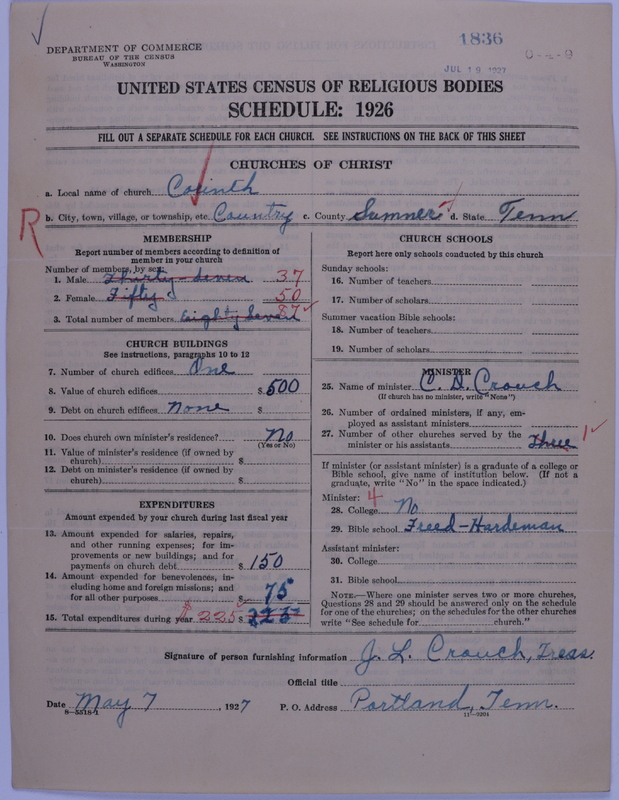 1836
DEPARTMENT OF COMMERCE
BUREAU OF THE CENSUS
WASHINGTON
JUL 19 1927
UNITED STATES CENSUS OF RELIGIOUS BODIES
SCHEDULE: 1926
FILL OUT A SEPARATE SCHEDULE FOR EACH CHURCH. SEE INSTRUCTIONS ON THE BACK OF THIS SHEET
CHURCHES OF CHRIST
a. Local name of church Corinth
R
b. City, town, village, or township, etc. Country c. County Sumner d. State Tenn
MEMBERSHIP
Report number of members according to definition of
member in your church
Number of members, by sex:
1. Male Thirty-seven 37
2. Female Fifty 50
3. Total number of members eighty seven 87
CHURCH BUILDINGS
See instructions, paragraphs 10 to 12
7. Number of church edifices One
8. Value of church edifices $ 500
9. Debt on church edifices None $
10. Does church own minister's residence? No
(Yes or No)
11. Value of minister's residence (if owned by
church) $
12. Debt on minister's residence (if owned by
church) $
EXPENDITURES
Amount expended by your church during last fiscal year
13. Amount expended for salaries, repairs,
and other running expenses; for im-
provements or new buildings; and for
payments on church debt $ 150
14. Amount expended for benevolences, in-
cluding home and foreign missions; and
for all other purposes $ 75
15. Total expenditures during year $ 225 $
CHURCH SCHOOLS
Report here only schools conducted by this church
Sunday schools:
16. Number of teachers
17. Number of scholars
Summer vacation Bible schools:
18. Number of teachers
19. Number of scholars
MINISTER
25. Name of minister C. D. Crouch
(If church has no minister, write "None")
26. Number of ordained ministers, if any, em-
ployed as assistant ministers
27. Number of other churches served by the
minister or his assistants three 1
If minister (or assistant minister) is a graduate of a college or
Bible school, give name of institution below. (If not a
graduate, write "No" in the space indicated.)
Minister: 4
28. College No
29. Bible school Freed-Hardeman
Assistant minister:
30. College
31. Bible school
NOTE.—Where one minister serves two or more churches,
Questions 28 and 29 should be answered only on the schedule
for one of the churches; on the schedules for the other churches
write "See schedule for church."
Signature of person furnishing information J. L. Crouch, Treas.
Official title
Date May 7, 1927 P. O. Address Portland, Tenn.
8-5518-1
11-9204